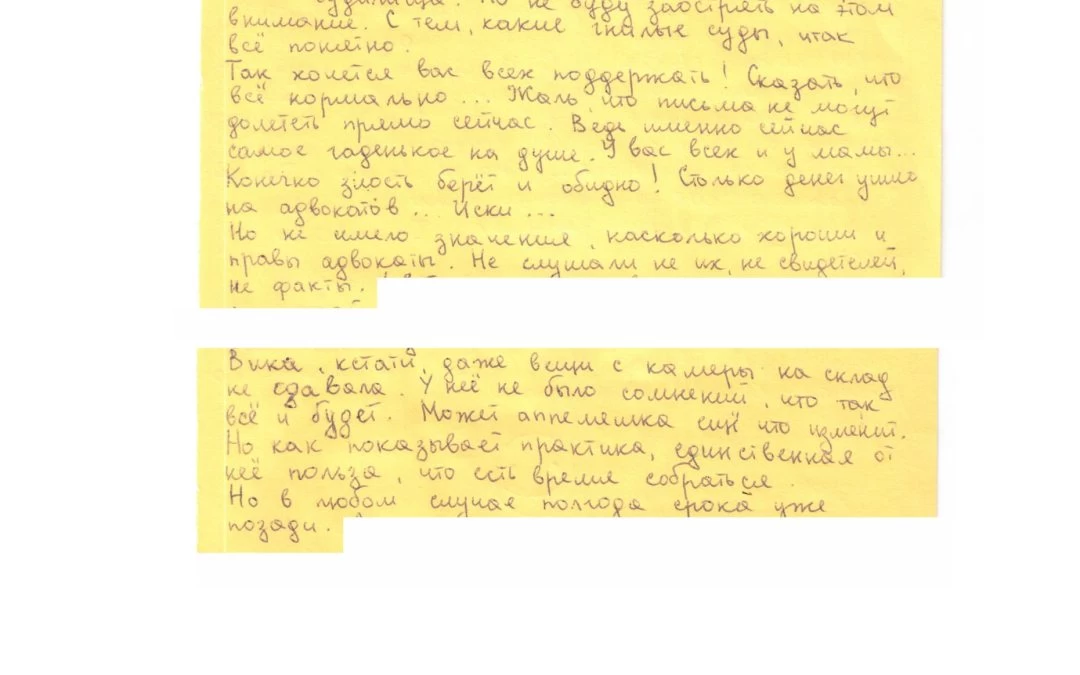 судилища. Но не буду заострять на этом
внимание. С тем, какие гнилые суды, итак
всё понятно.
Так хочется вас всех поддержать! Сказать, что
всё нормально... Жаль, что письма не могут
долететь прямо сейчас. Ведь именно сейчас
самое гаденькое на душе. У вас всех и у мамы...
Конечно злость берёт и обидно! Столько денег ушло
на адвокатов... Иски...
Но не имело значение, насколько хороши и
правы адвокаты. Не слушали не их, не свидетелей,
не факты.
Вика, кстати, даже вещи с камеры на склад
не сдавала. У неё не было сомнений, что так
всё и будет. Может аппеляшка что изменит.
Но как показывает практика, единственная от
неё польза, что есть время собраться.
Но в любом случае полгода срока уже
позади.